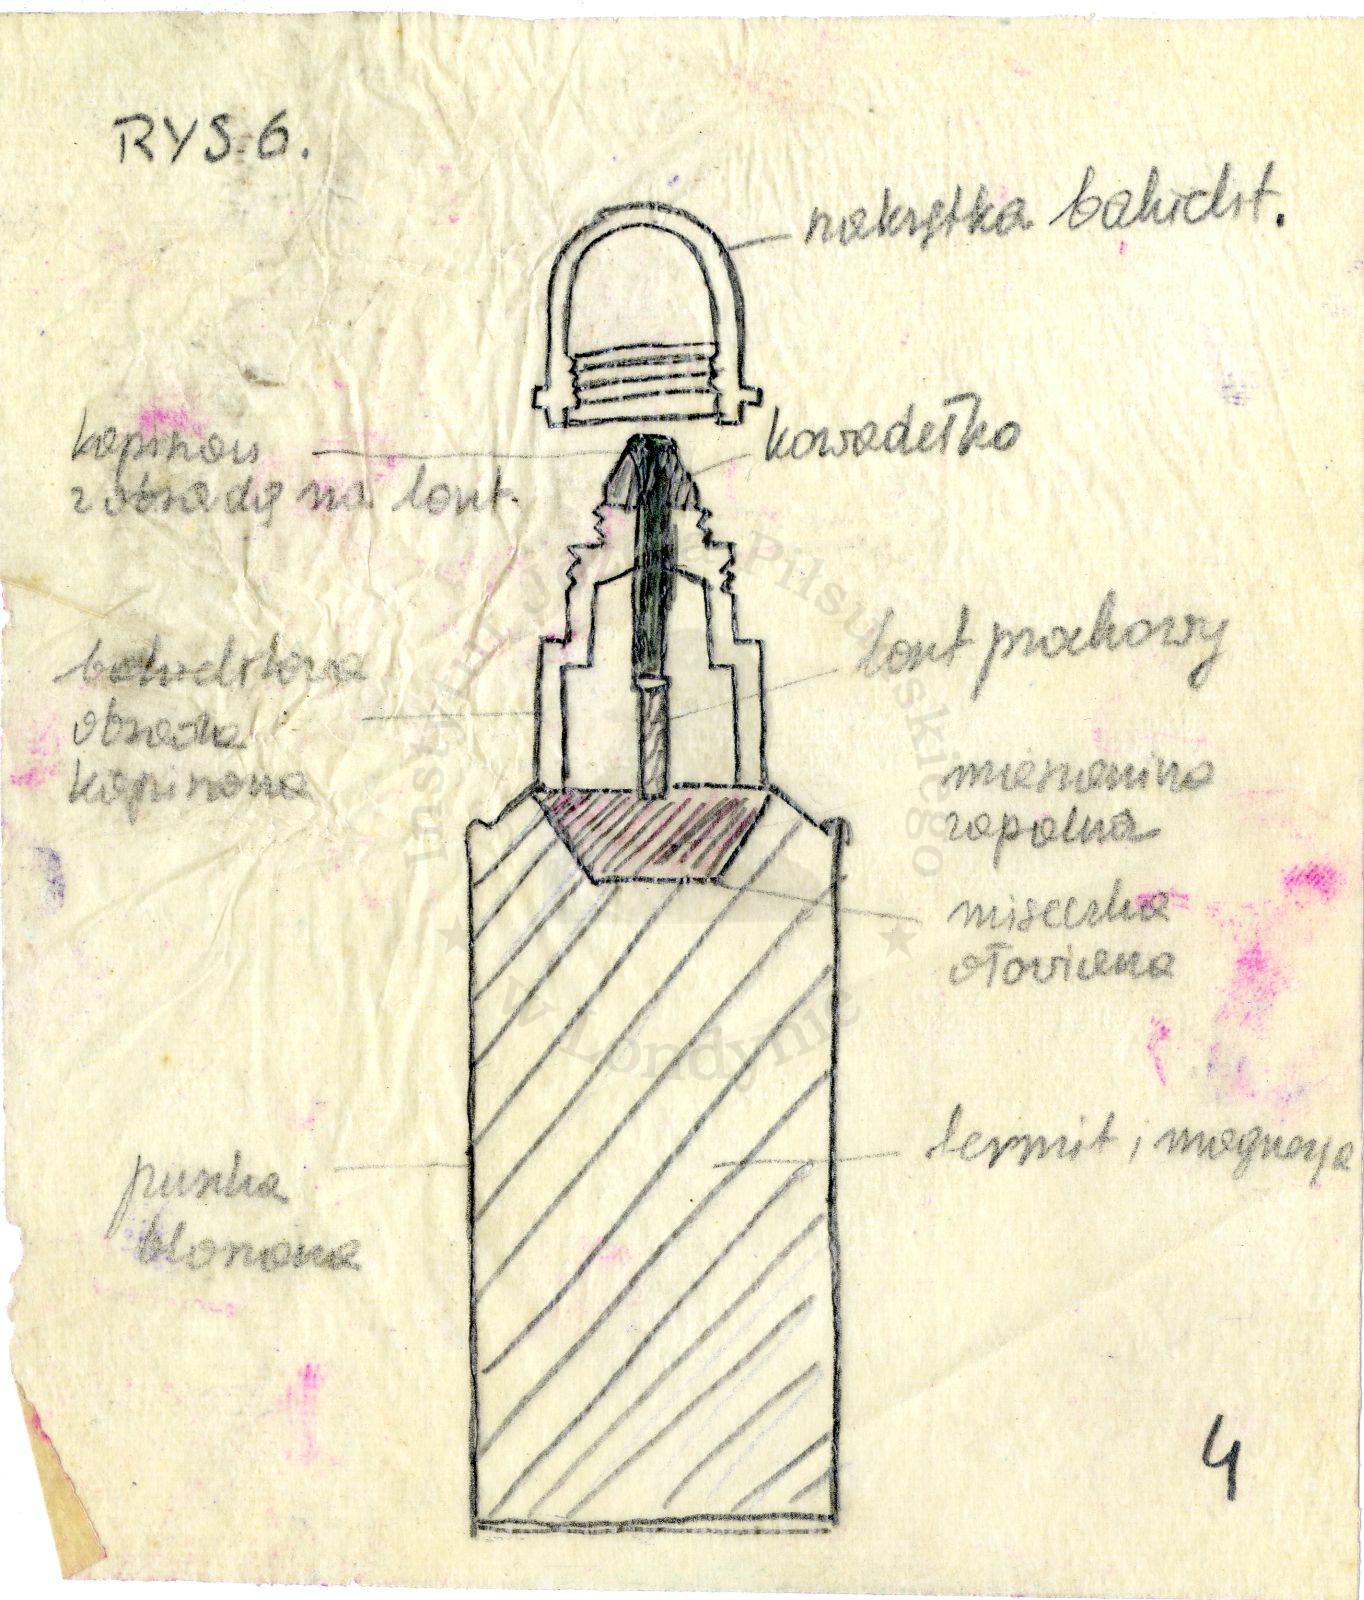 RYS. 6.
nakrętka bakielit.
kowadełko
kapiszon
z obsadą na lont.
lont prochowy
bakielitowa
obsada
kapiszona
mieszanina
zapalna
miseczka
ołowiana
termit i magnezja
puszka
blaszana
4
Instytut Józefa Piłsudskiego
w Londynie